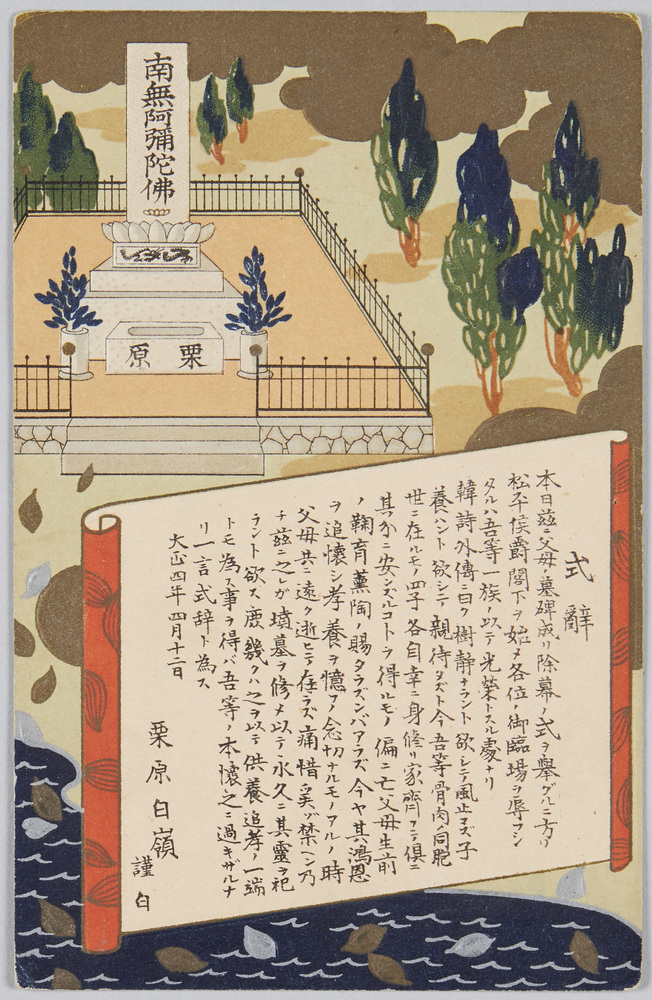 南無阿彌陀佛
栗原
式辭
本日茲ニ父母ノ墓碑成リ除幕ノ式ヲ擧グルニ方リ
松平侯爵閣下ヲ始メ各位ノ御臨場ヲ辱フシ
タルハ吾等一族ノ以テ光榮トスル處ナリ
韓詩外傳ニ曰ク樹静ナラント欲シテ風止マズ子
養ハント欲シテ親待タズト今吾等骨肉ノ同胞
世ニ在ルモノ四子各自幸ニ身修リ家齊フテ俱ニ
其分ニ安ンズルコトヲ得ルモノ偏ニ亡父母生前
ノ鞠育薫陶ノ賜タラズンバアラズ今ヤ其鴻恩
ヲ追懷シ孝養ヲ憶フノ念切ナルモノアルノ時
父母共ニ遠ク逝ヒテ在ラズ痛惜奚ゾ禁ヘン乃
チ茲ニ之レガ墳墓ヲ修メ以テ永久ニ其靈ヲ祀
ラント欲ス庶幾クハ之ヲ以テ供養追孝ノ一端
トモ為ス事ヲ得バ吾等ノ本懷之ニ過ギザルナ
リ一言式辞ト為ス
大正四年四月十二日
栗原白嶺
謹白